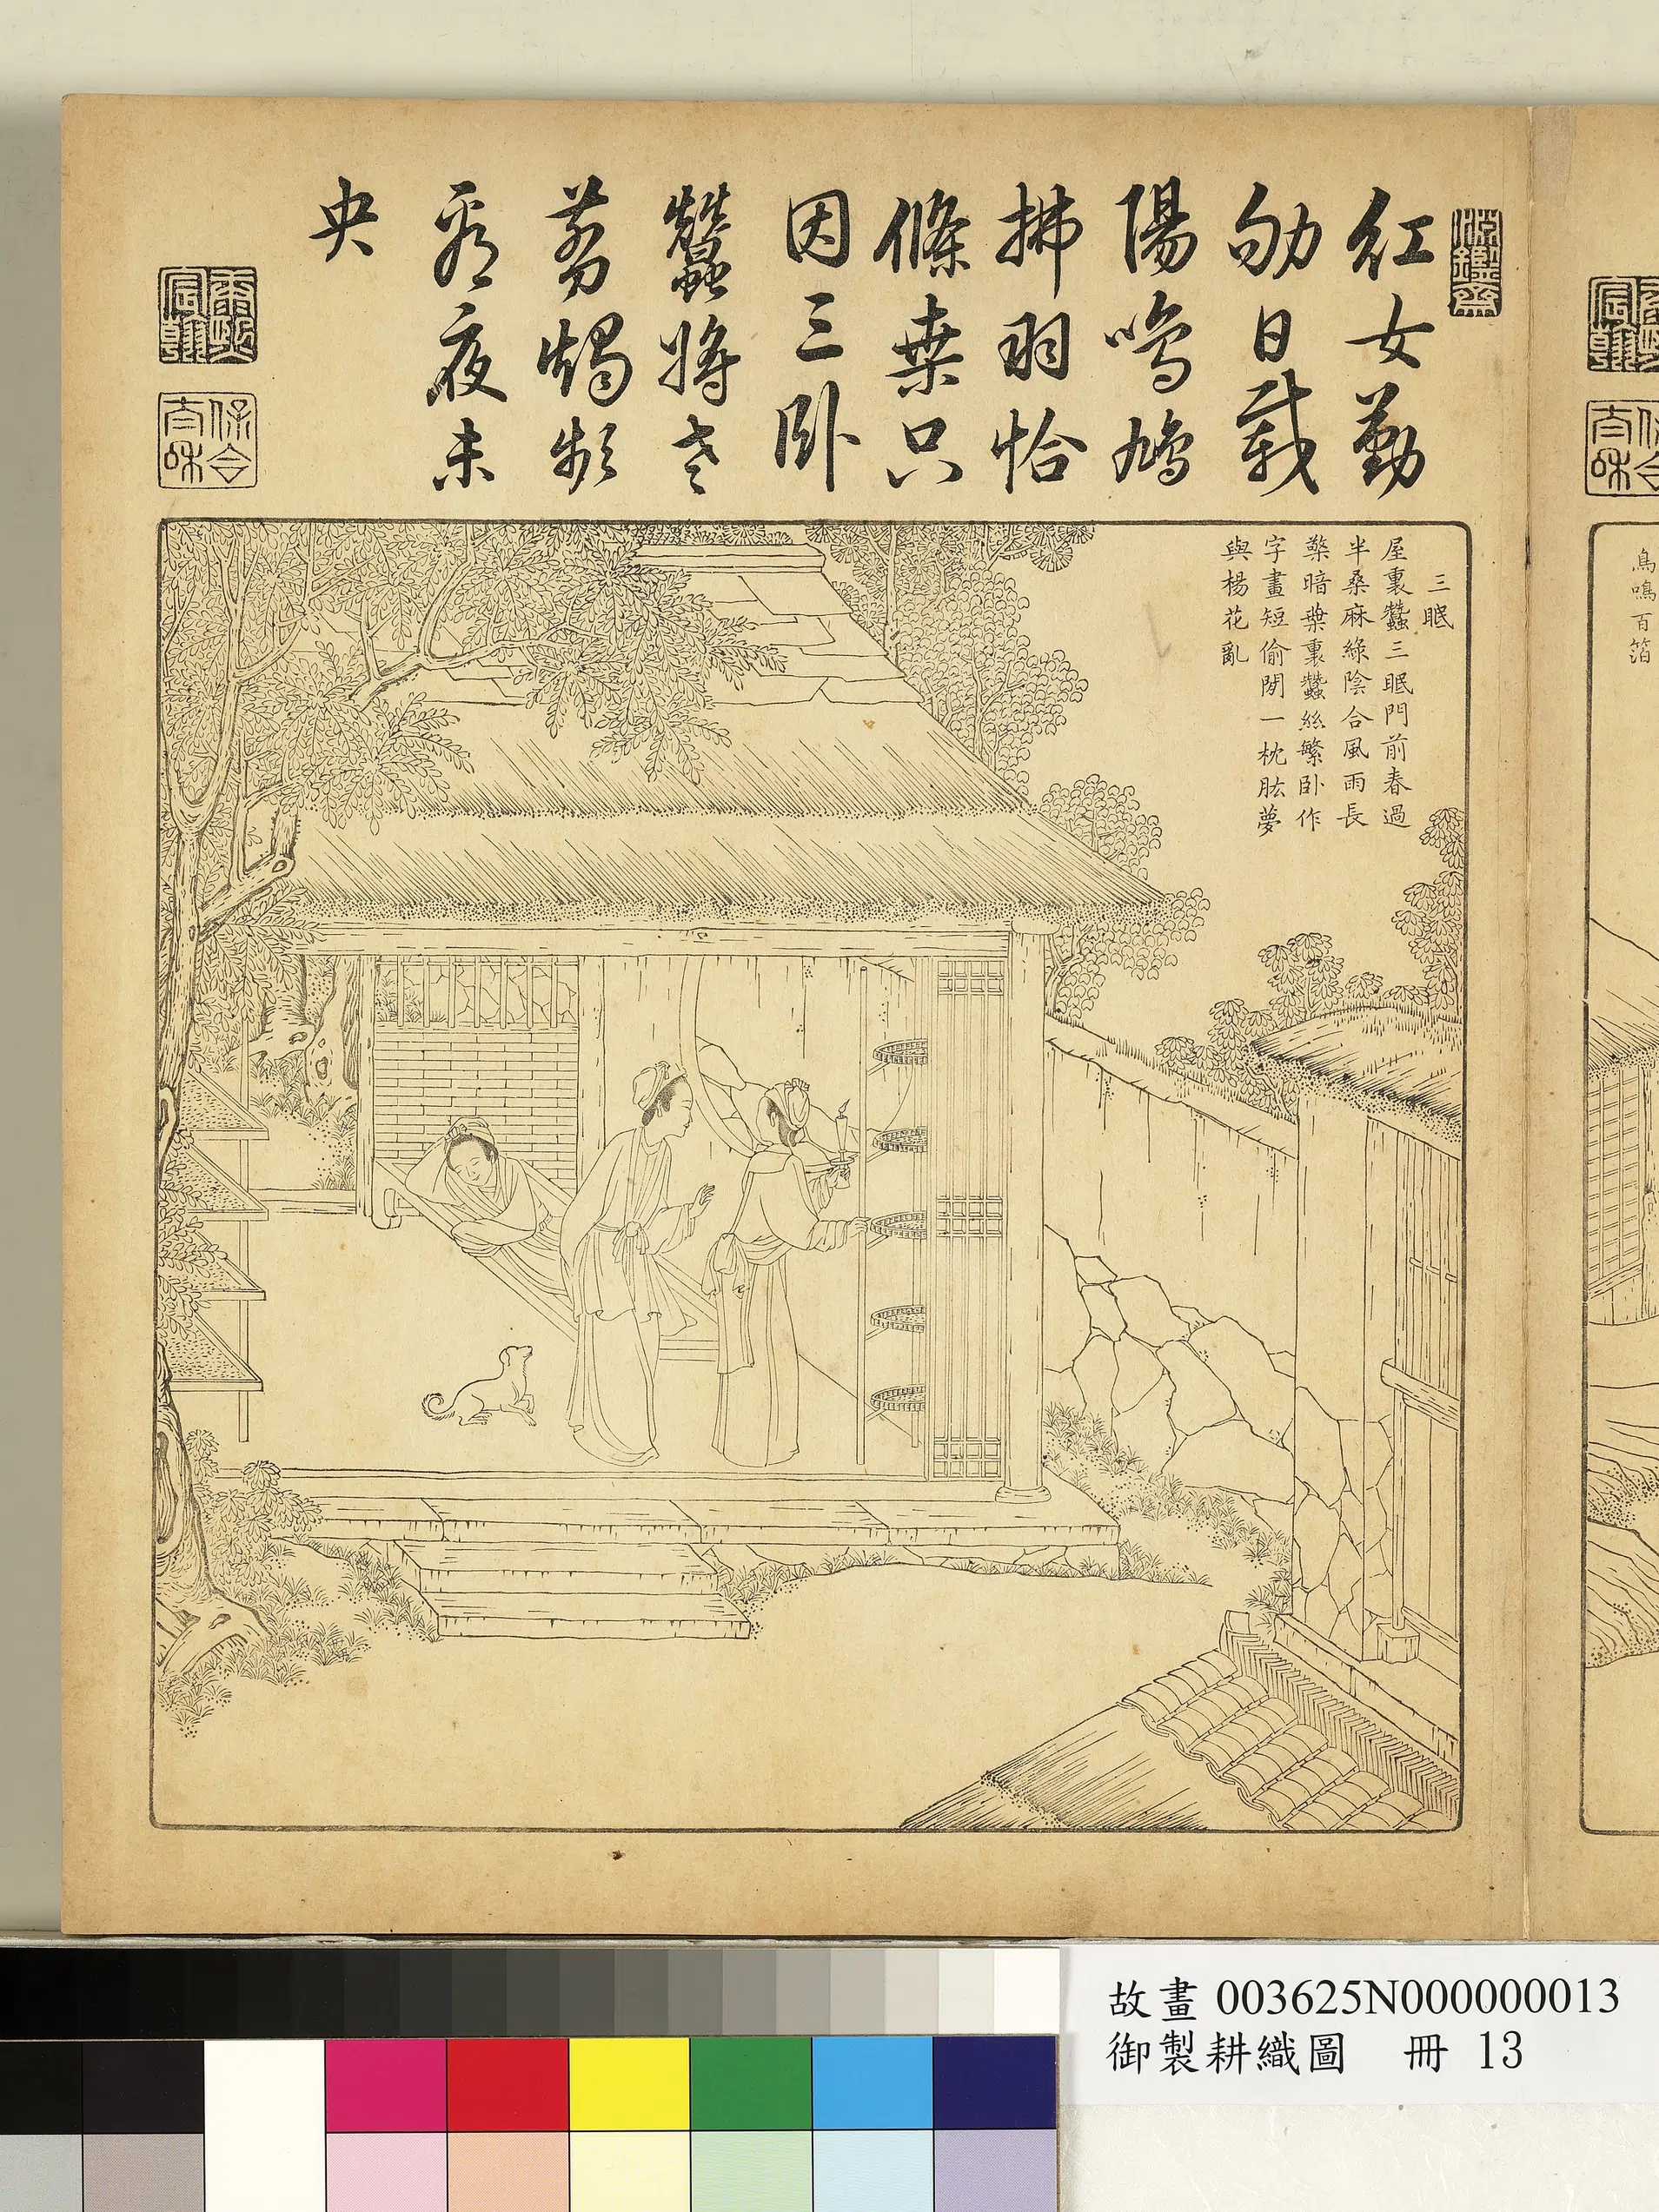 淵鑒齋
紅女勤
劬日載
陽鳴鳩
拂羽恰
條桒只
因三卧
蠶將老
剪燭頻
看夜未
央
康熙宸翰
保合太和
三眠
屋裏蠶三眠門前春過
半桑麻綠陰合風雨長
檠暗葉裏蠶絲繁卧作
字畫短偷閒一枕肱夢
與楊花亂
鳥鳴百箔
故畫 003625N000000013
御製耕織圖 冊 13